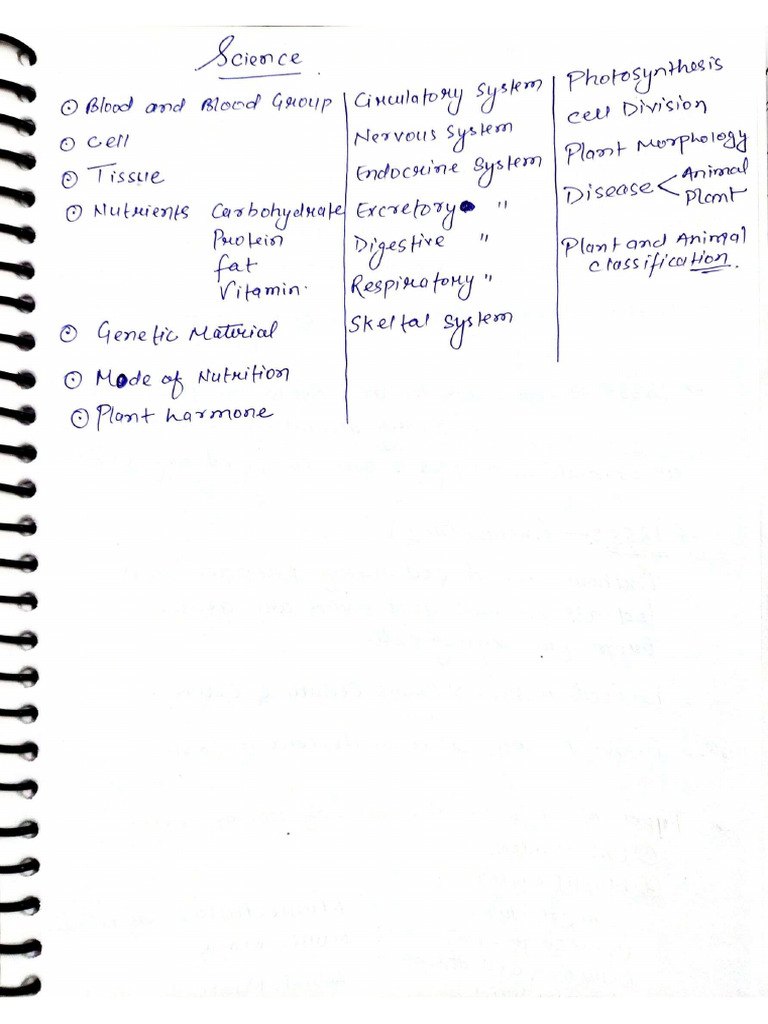 Science
⊙ Blood and Blood Group
⊙ Cell
⊙ Tissue
⊙ Nutrients Carbohydrate
Protein
fat
Vitamin.
⊙ Genetic Material
⊙ Mode of Nutrition
⊙ Plant harmone
Circulatory System
Nervous System
Endocrine System
Excretory "
Digestive "
Respiratory "
Skeltal System
Photosynthesis
Cell Division
Plant Morphology
Disease < Animal
Plant
Plant and Animal
classification.